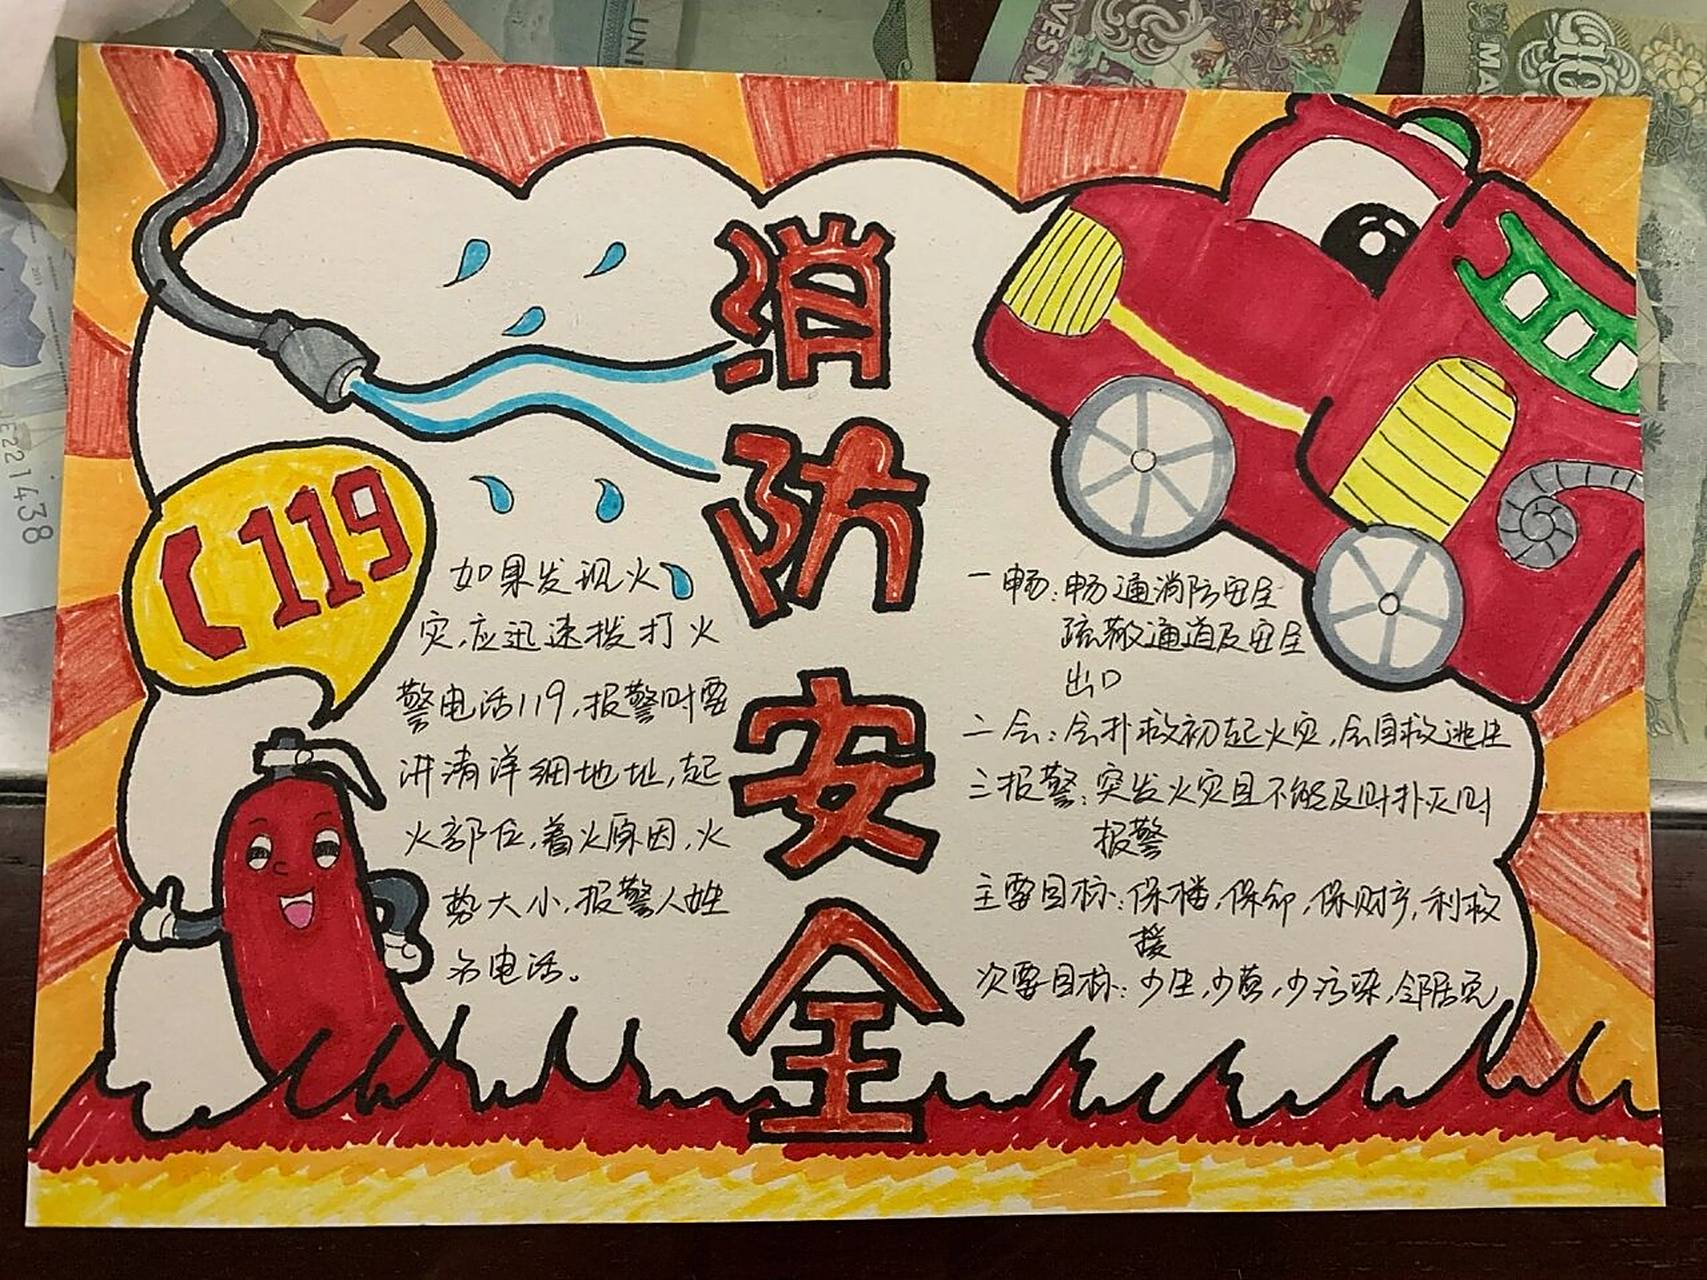 消防安全
119
如果发现火
灾,应迅速拨打火
警电话119,报警时要
讲清详细地址,起
火部位,着火原因,火
势大小,报警人姓
名电话。
一畅:畅通消防安全
疏散通道及安全
出口
二会:会扑救初起火灾,会自救逃生
三报警:突发火灾且不能及时扑灭时
报警
主要目标:保楼,保命,保财产,利救
援
次要目标:少生,少蔫,少污染,邻居完
UNI
VES M
10
MA
E221438